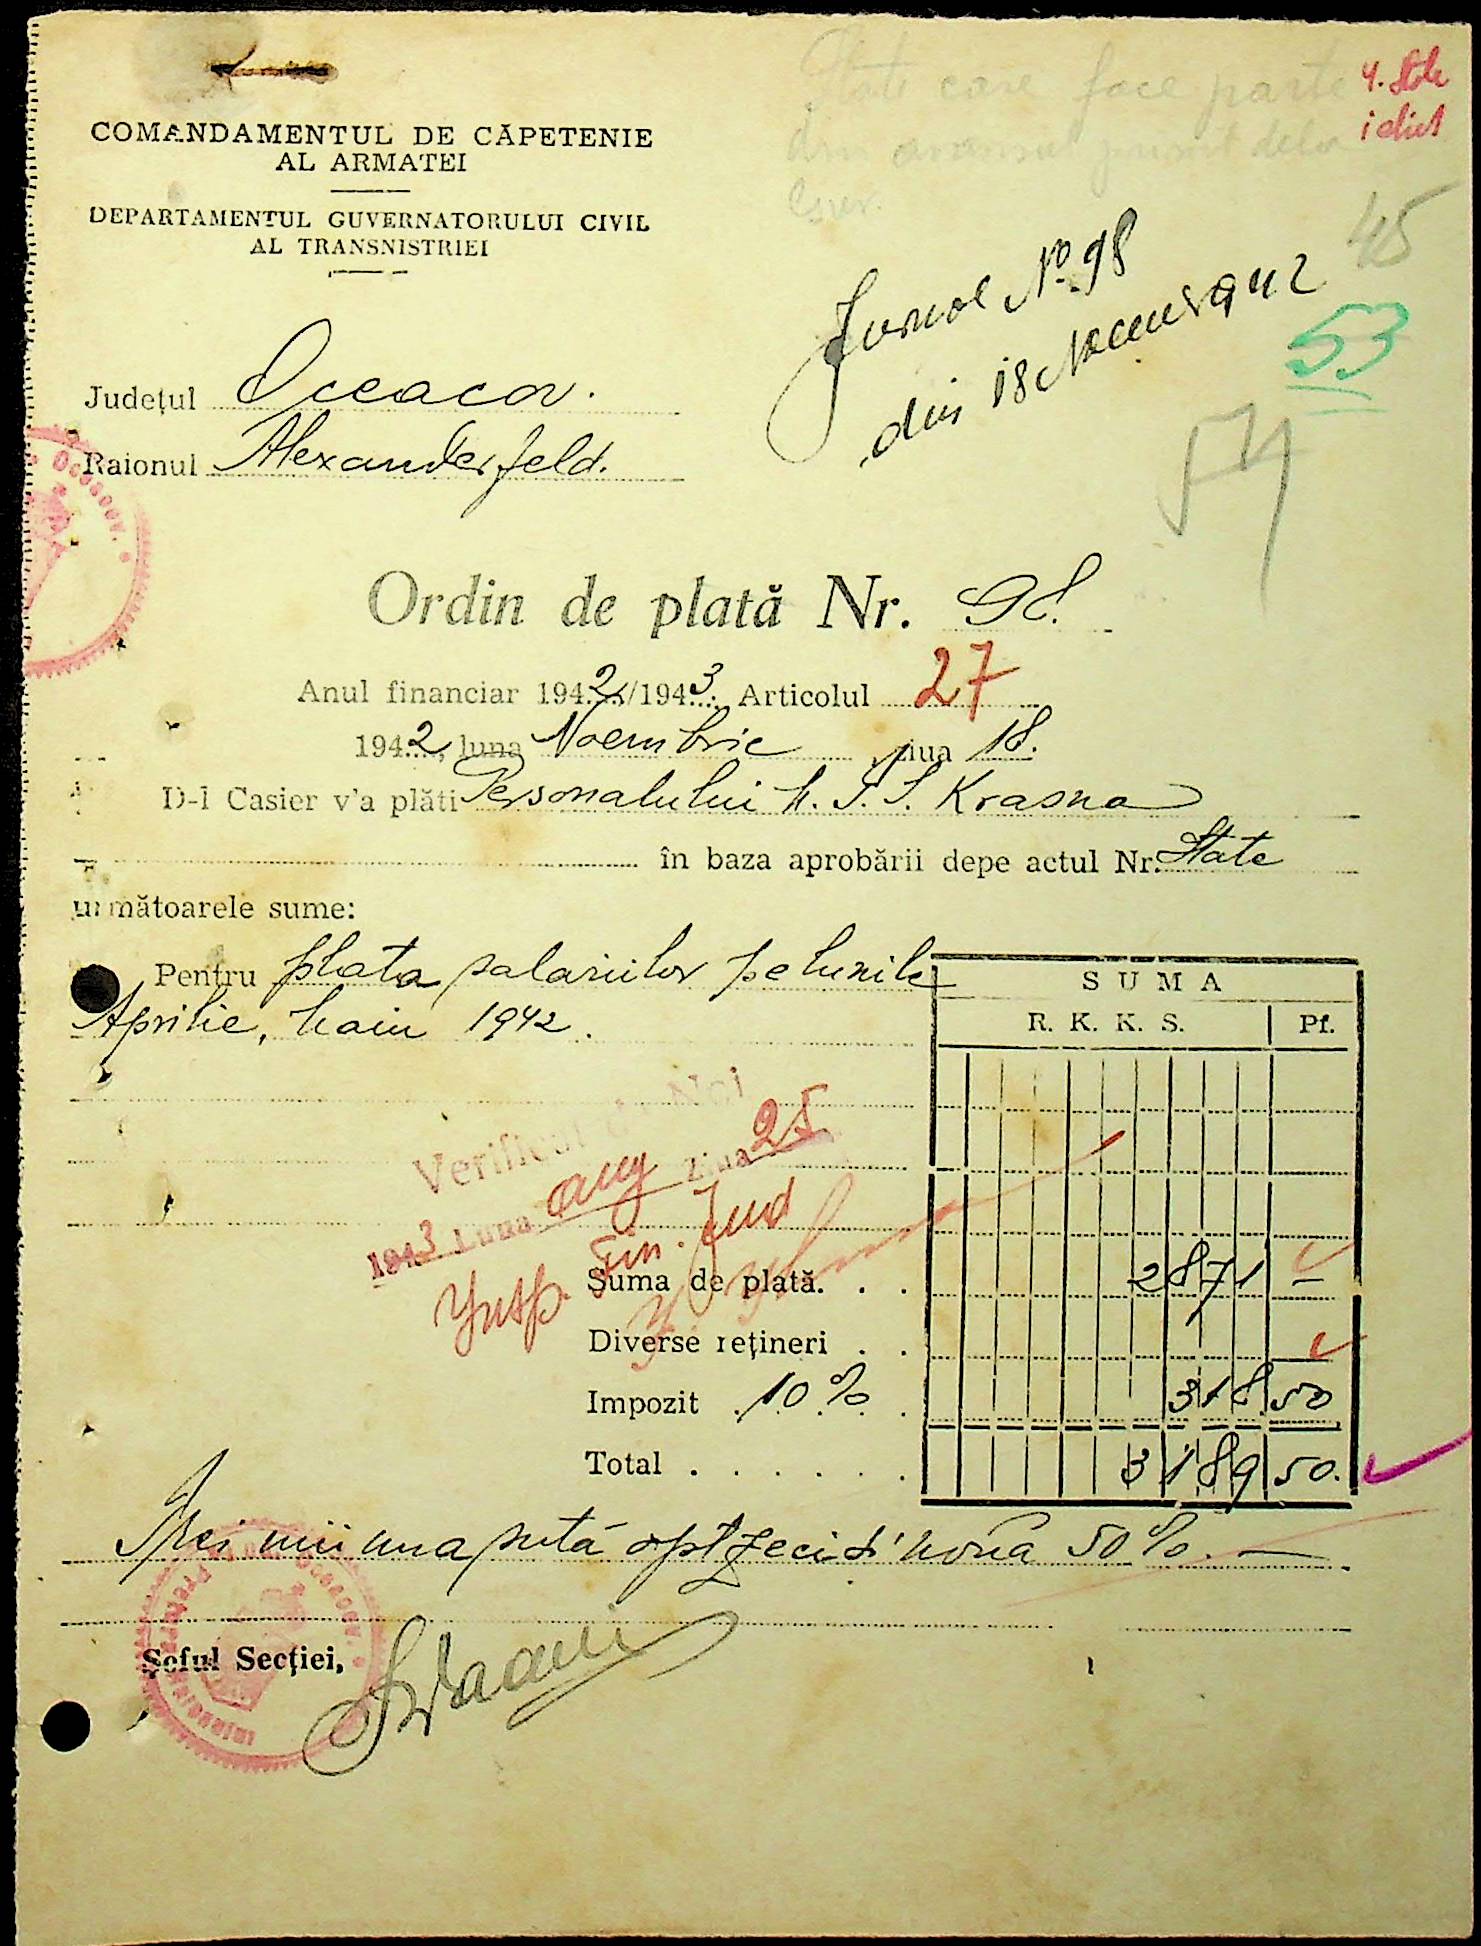 State care face parte
din avansul primit dela
Guv.
4. State
COMANDAMENTUL DE CĂPETENIE
AL ARMATEI
DEPARTAMENTUL GUVERNATORULUI CIVIL
AL TRANSNISTRIEI
Jurnal No. 98
din 18 Noemv 942
45
53
Județul Oceacov.
Raionul Alexanderfeld.
Oceacov.
Ordin de plată Nr. 98.
Anul financiar 1942/1943. Articolul 27
1942, luna Noembrie, ziua 18.
D-l Casier v'a plăti Personalului M. T. S. Krasna
în baza aprobării depe actul Nr. State
următoarele sume:
Pentru plata salariilor pe lunile
Aprilie, Maiu 1942.
SUMA
R. K. K. S. Pf.
Verificat de Noi
1943 Luna aug Ziua 25
Insp. Fin. Jud
Suma de plată. . . 2871 —
Diverse rețineri . .
Impozit 10% . 318 50
Total . . . . . . 3189 50.
Trei mii una sută optzeci și nouă 50%. —
Șeful Secției,